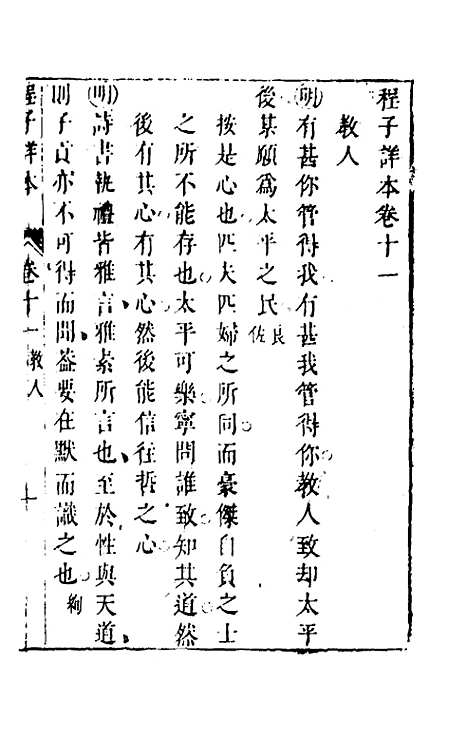 程子詳本卷十一
教人
(明)有甚你管得我有甚我管得你教人致却太平
後某願爲太平之民 良佐
按是心也匹夫匹婦之所同而豪傑自負之士
之所不能存也太平可樂寧問誰致知其道然
後有其心有其心然後能信往哲之心
(明)詩書執禮皆雅言雅素所言也至於性與天道
則子貢亦不可得而聞蓋要在默而識之也 絢
程子詳本 卷十一 教人 一